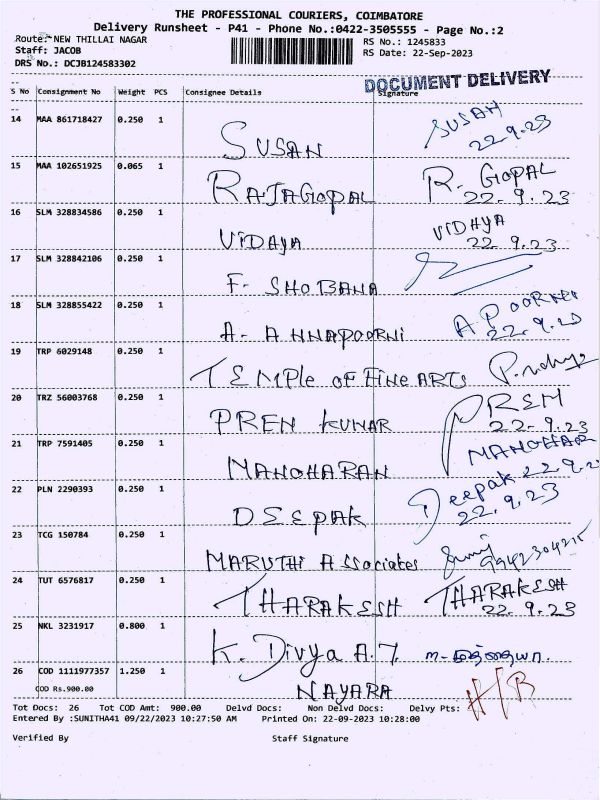 THE PROFESSIONAL COURIERS, COIMBATORE
Delivery Runsheet - P41 - Phone No.:0422-3505555 - Page No.:2
Route: NEW THILLAI NAGAR
RS No.: 1245833
Staff: JACOB
RS Date: 22-Sep-2023
DRS No.: DCJB124583302
DOCUMENT DELIVERY
S No Consignment No Weight PCS Consignee Details Signature
14 MAA 861718427 0.250 1 SUSAN SUSAN 22.9.23
15 MAA 102651925 0.065 1 RAJAGOPAL R. GOPAL 22.9.23
16 SLM 328834586 0.250 1 VIDAYA VIDHYA 22 9.23
17 SLM 328842106 0.250 1 F. SHOBANA
18 SLM 328855422 0.250 1 A. ANNAPOORNI A.POORNI 22.9.23
19 TRP 6029148 0.250 1 TEMPLE OF FINE ARTS
20 TRZ 56003768 0.250 1 PREN KUNAR PREM 22-9.23
21 TRP 7591405 0.250 1 MANOHARAN MANOHAR 22 9.2
22 PLN 2290393 0.250 1 DEEPAK Deepak 22.9.23
23 TCG 150784 0.250 1 MARUTHI Associates 9942304215
24 TUT 6576817 0.250 1 THARAKESH THARAKESH 22.9.23
25 NKL 3231917 0.800 1 K. Divya A.T.
26 COD 1111977357 1.250 1 NAYARA H/R
COD Rs.900.00
Tot Docs: 26 Tot COD Amt: 900.00 Delvd Docs: Non Delvd Docs: Delvy Pts:
Entered By :SUNITHA41 09/22/2023 10:27:50 AM Printed On: 22-09-2023 10:28:00
Verified By Staff Signature